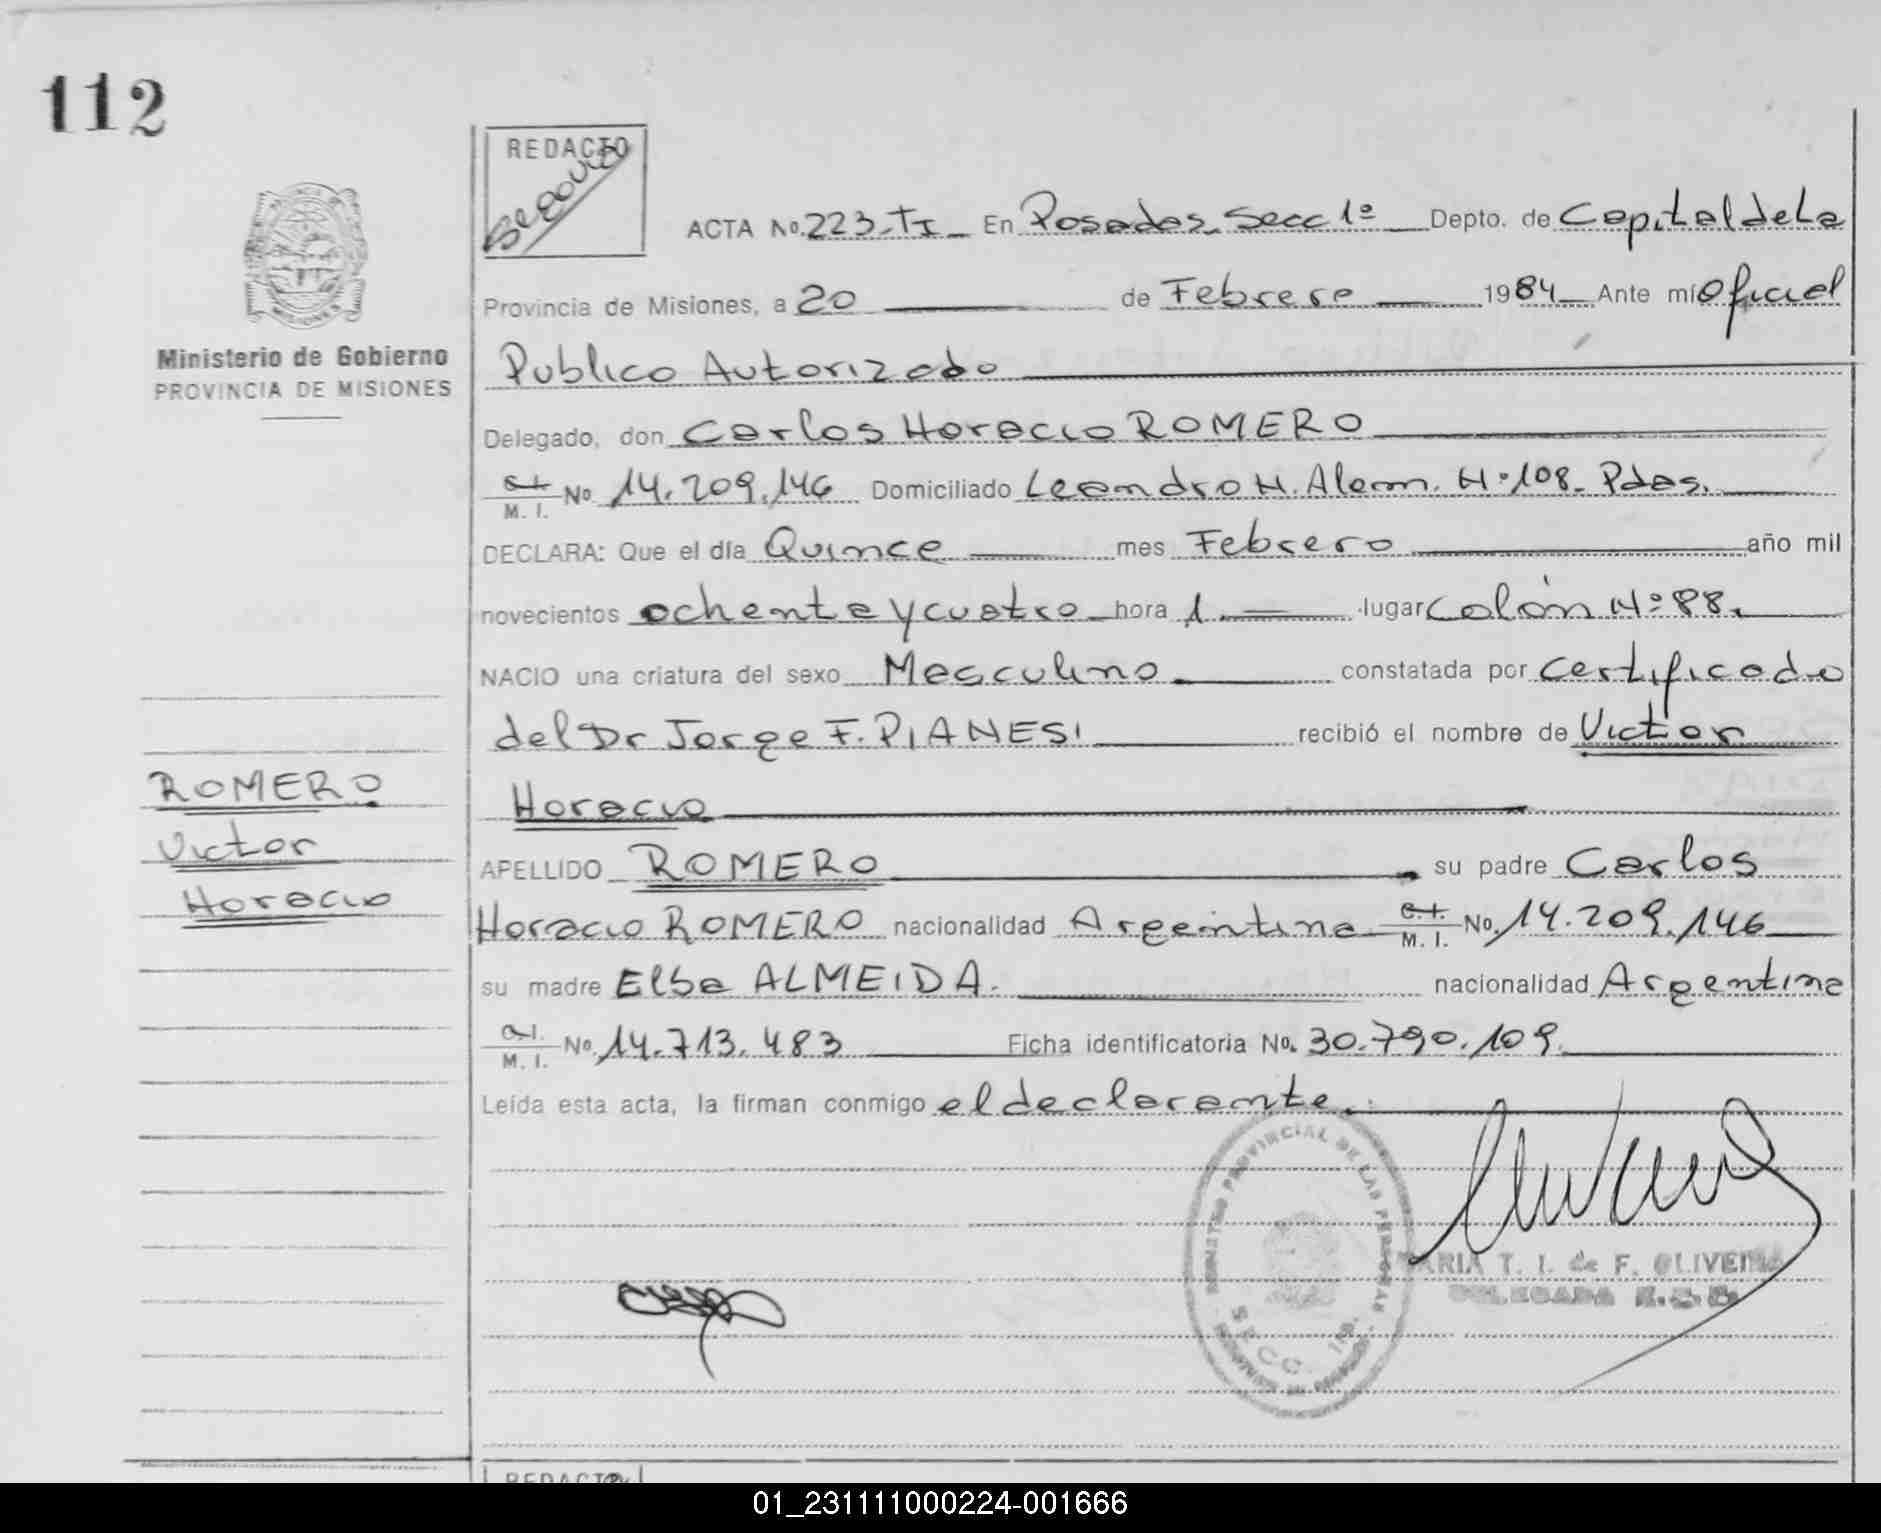 112
REDACTO
Segovia
ACTA No. 223-TI En Posadas Secc 1º Depto. de Capital de La
Provincia de Misiones, a 20 de Febrero 1984 Ante mí Oficial
Ministerio de Gobierno
PROVINCIA DE MISIONES
Publico Autorizado
Delegado, don Carlos Horacio ROMERO
M. I. No 14.209.146 Domiciliado Leandro N. Alem. Nº 108. Pdas.
DECLARA: Que el día Quince mes Febrero año mil
novecientos ochenta y cuatro hora 1. lugar Colón Nº 88.
NACIO una criatura del sexo Masculino constatada por certificado
del Dr Jorge F. PIANESI recibió el nombre de Victor
Horacio
ROMERO
Victor
Horacio
APELLIDO ROMERO su padre Carlos
Horacio ROMERO nacionalidad Argentina C.I. M. I. No. 14.209.146
su madre Elba ALMEIDA. nacionalidad Argentina
C.I. M. I. No. 14.713.483 Ficha identificatoria No. 30.790.109.
Leída esta acta, la firman conmigo el declarante.
REGISTRO PROVINCIAL DE LAS PERSONAS
SECC. 1RA.
MARIA T. I. de F. OLIVEIRA
DELEGADA
REDACTO
01_231111000224-001666